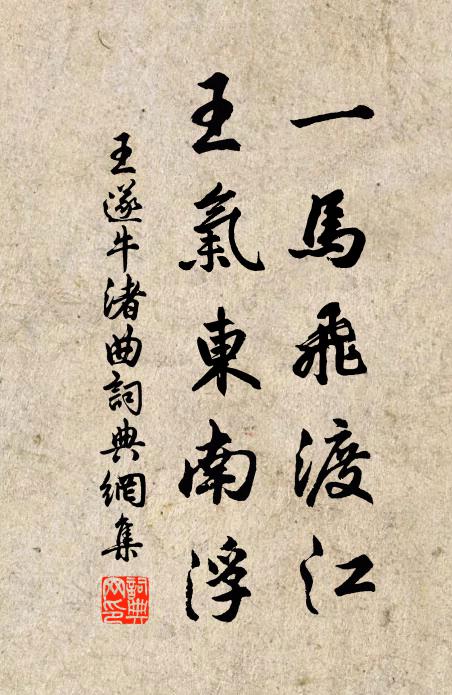 一馬飛渡江
王氣東南浮
王遂牛渚曲詞典網集
詞典網印